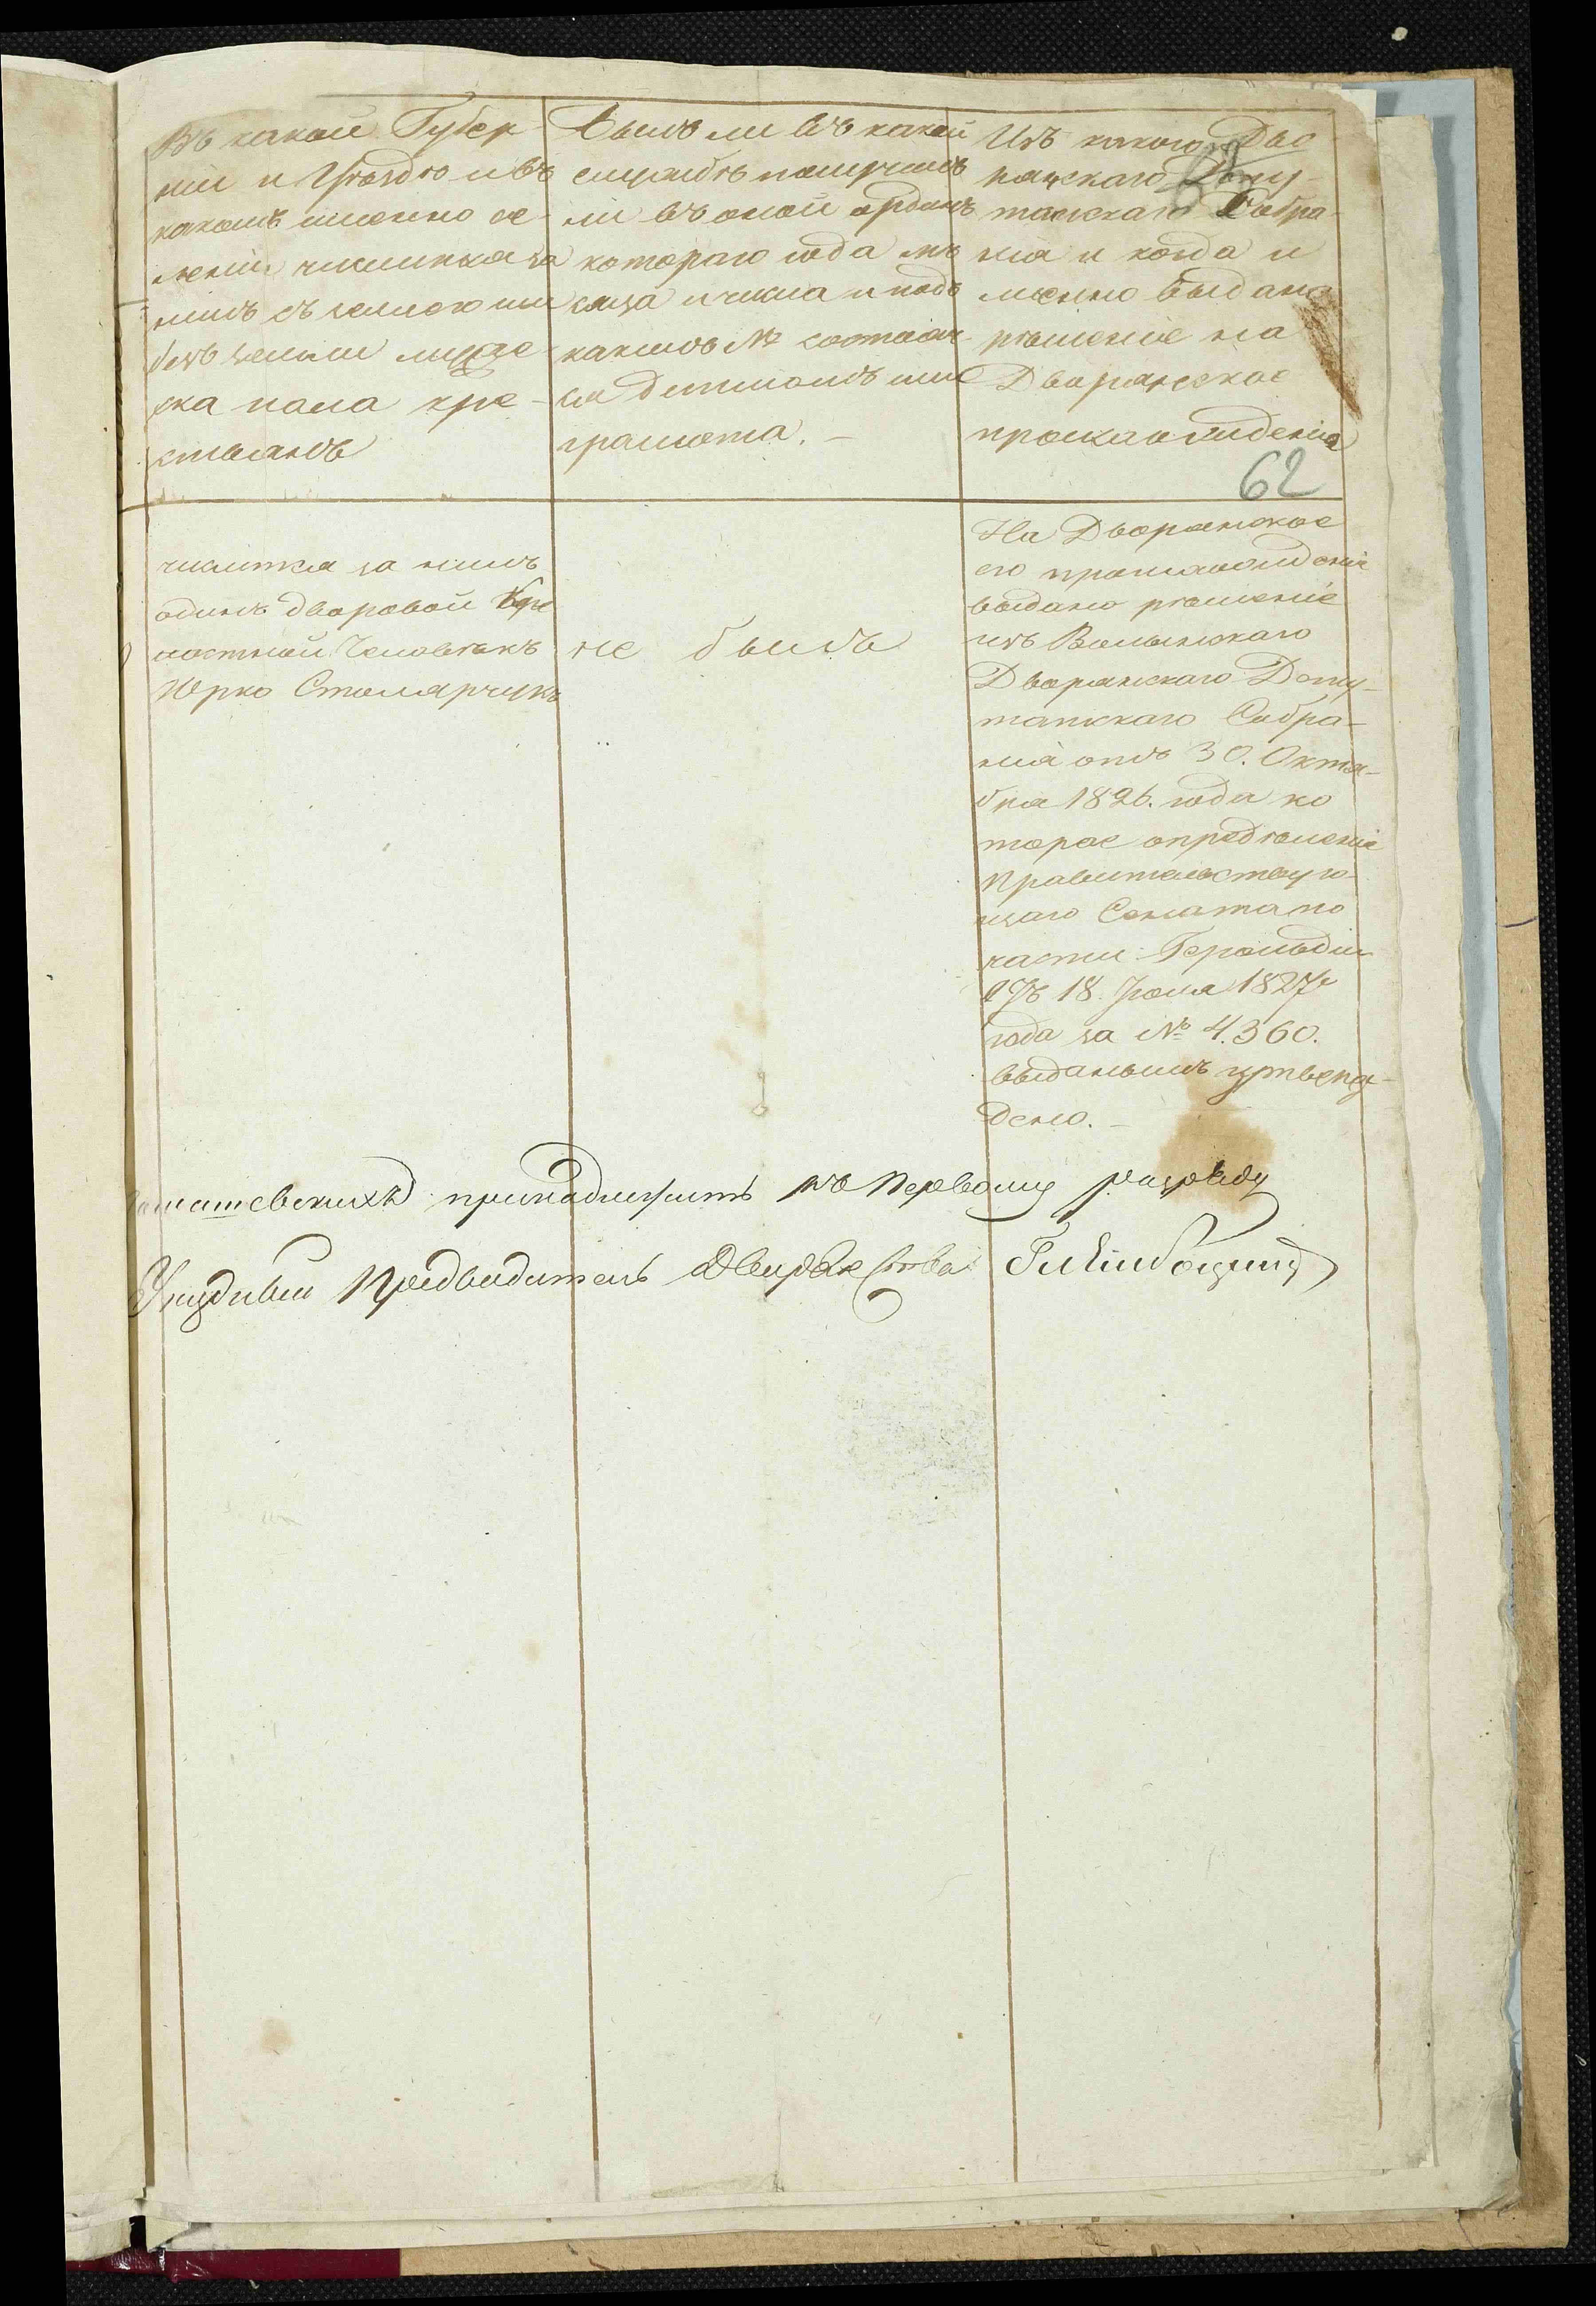 Въ какой Губер-
ніи и Уѣздѣ и въ
какомъ именно се-
леніи числится за
нимъ съ землею или
безъ земли мужес-
ска пола кре-
стьянъ
Былъ ли въ какой
службѣ получилъ
ли въ оной орденъ
котораго года мѣ
сяца и числа и подъ
какимъ № состояч.
ся дипломъ или
грамота. —
Изъ какого Дво
рянскаго Депу-
татскаго Собра-
нія и когда и
менно выдано
рѣшеніе на
Дворянское
происхожденіе
62
числится за нимъ
одинъ дворовой Кре
постной Человѣкъ
Юрко Столярчукъ
не былъ
На Дворянское
его происхожденіе
выдано рѣшеніе
изъ Волынскаго
Дворянскаго Депу-
татскаго Собра-
нія отъ 30. Октя-
бря 1826. года ко
торое опредѣленіе
Правительствую-
щаго Сената по
части Герольдіи
18. Іюля 1827
года за № 4.360.
выданымъ утверж-
дено. —
принадлежитъ къ первому разряду
Уездный Предводитель Дворянства